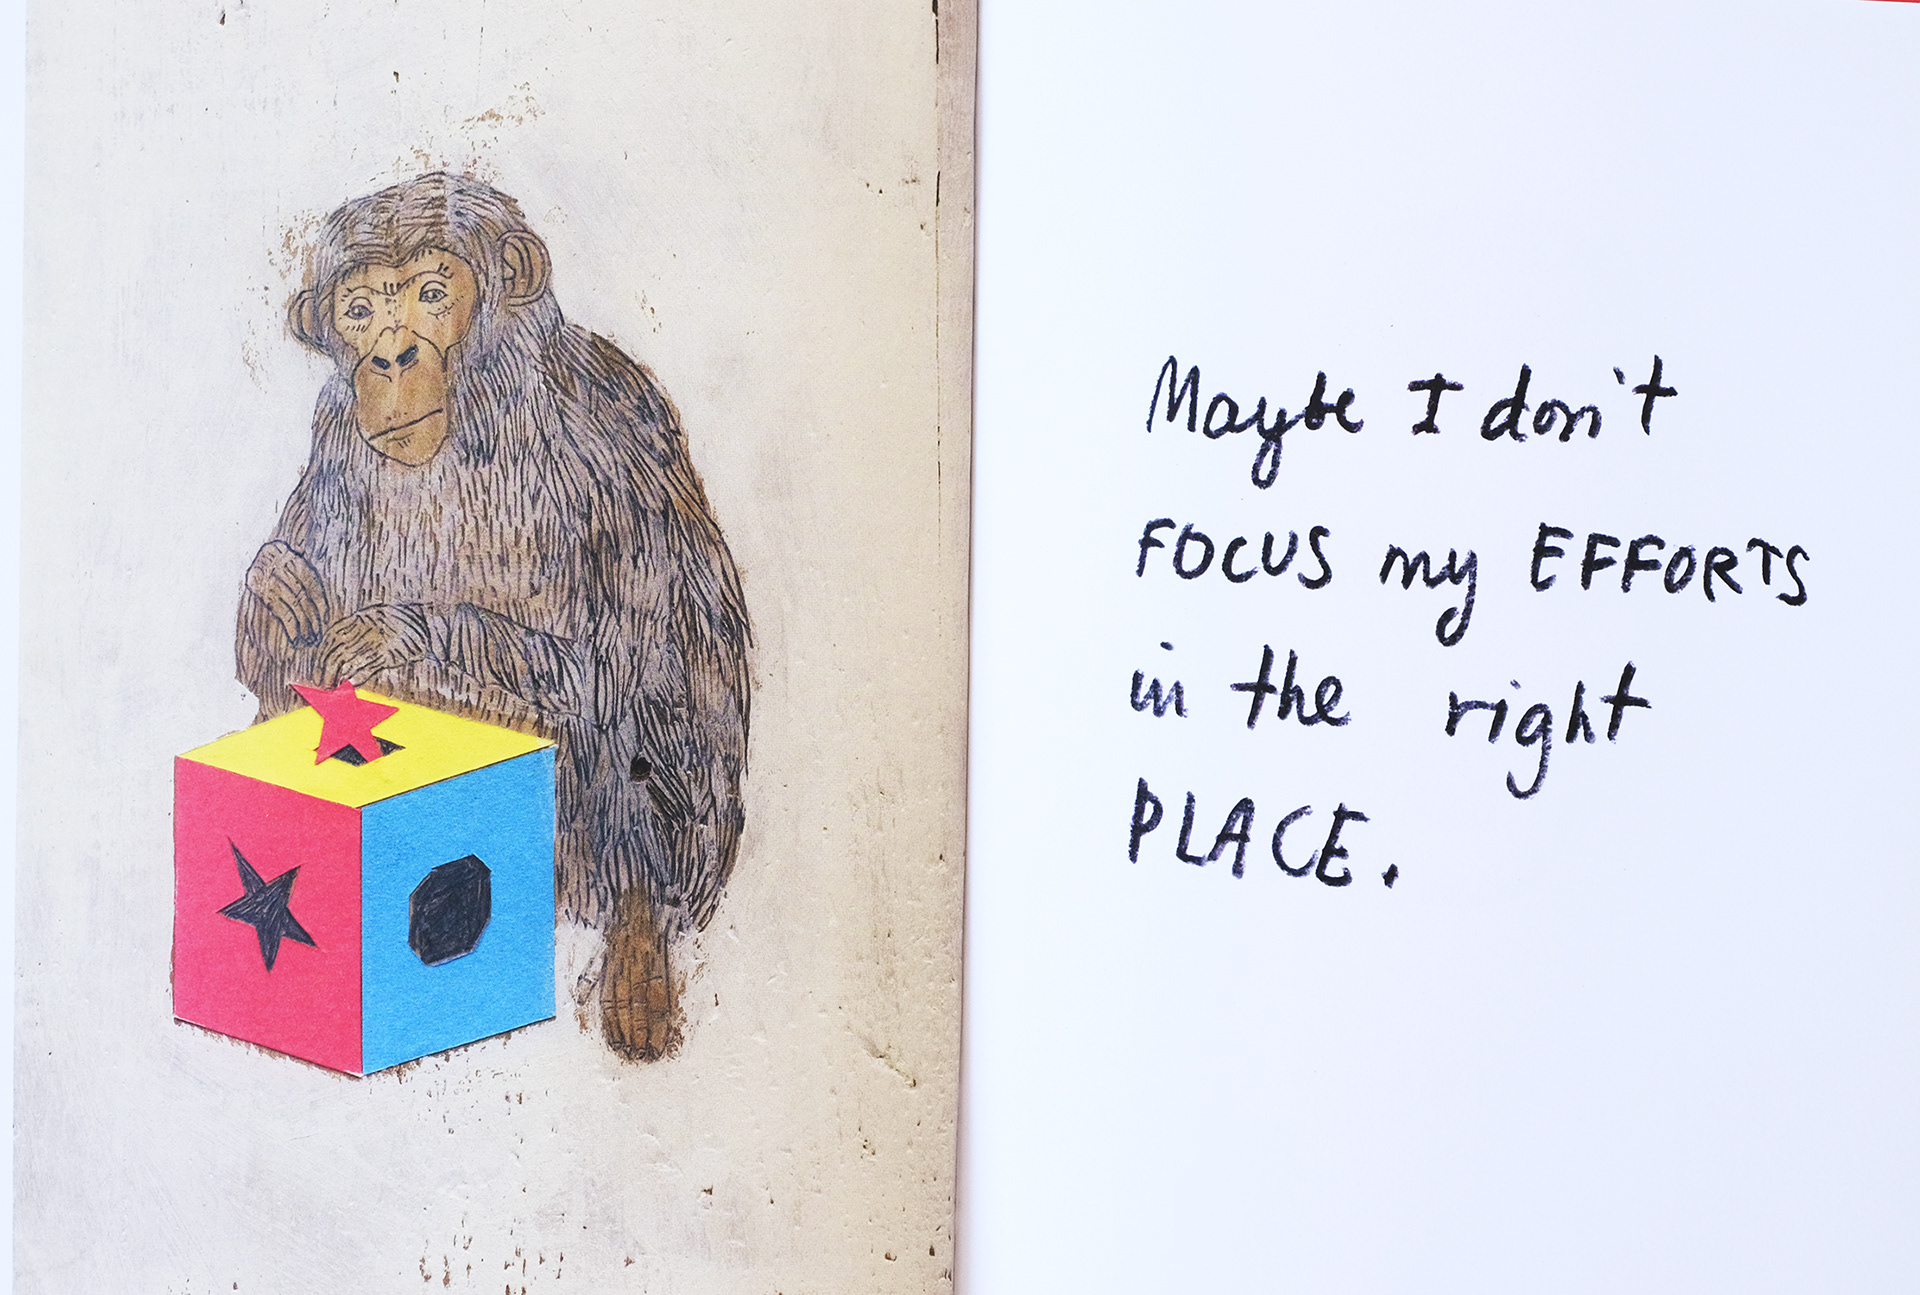 Maybe I don't
FOCUS my EFFORTS
in the right
PLACE.